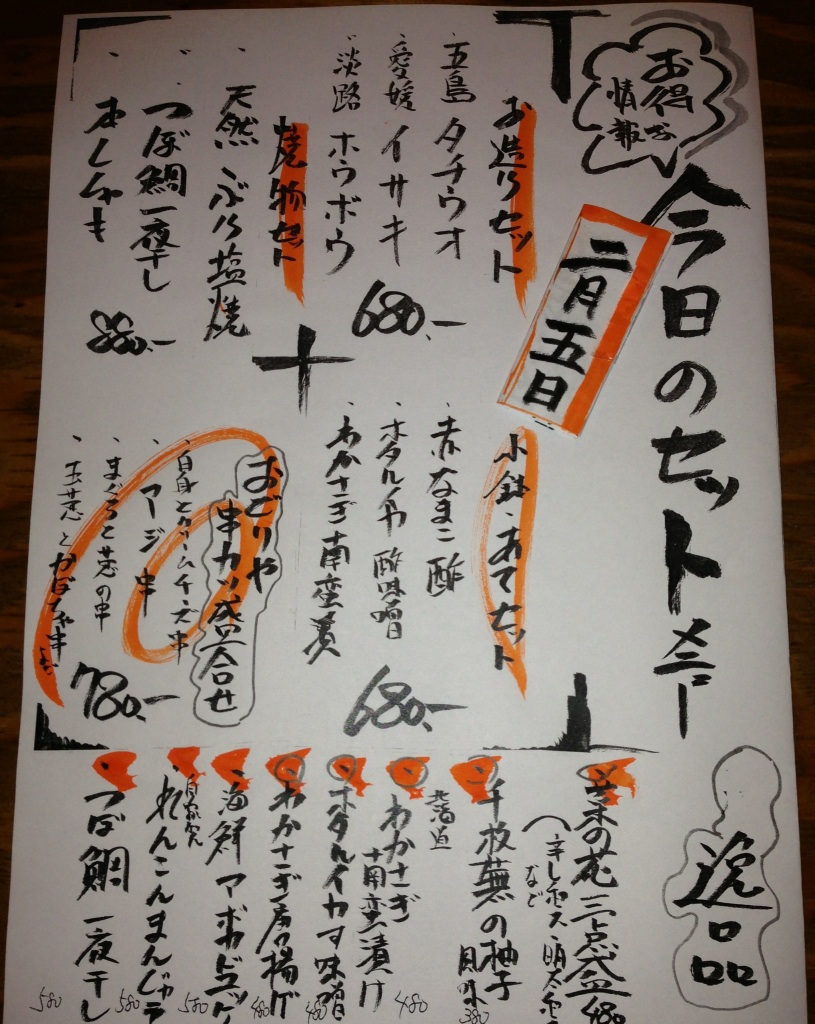 お得な
情報
今日のセットメニュー
二月五日
お造りセット
・五島 タチウオ
・愛媛 イサキ
・淡路 ホウボウ
680.-
焼物セット
・天然 ぶり塩焼
・つぼ鯛一夜干し
・本ししゃも
880.-
小鉢・あてセット
・赤なまこ酢
・ホタルイカ酢味噌
・わかさぎ南蛮漬
680.-
おどりや
串カツ盛合せ
・白身とクリームチーズ串
・アジ串
・まぐろと葱の串
・玉葱とかぼちゃ串
780.-
逸品
菜の花三点盛 480
(辛しポン酢・明太
など
千枚蕪の柚子
風味 380
北海道
わかさぎ
南蛮漬け 480
ホタルイカす味噌 480
わかさぎ唐揚げ 480
海鮮アボカドユッケ 580
自家製
れんこんまんじゅう 580
つぼ鯛一夜干し 580